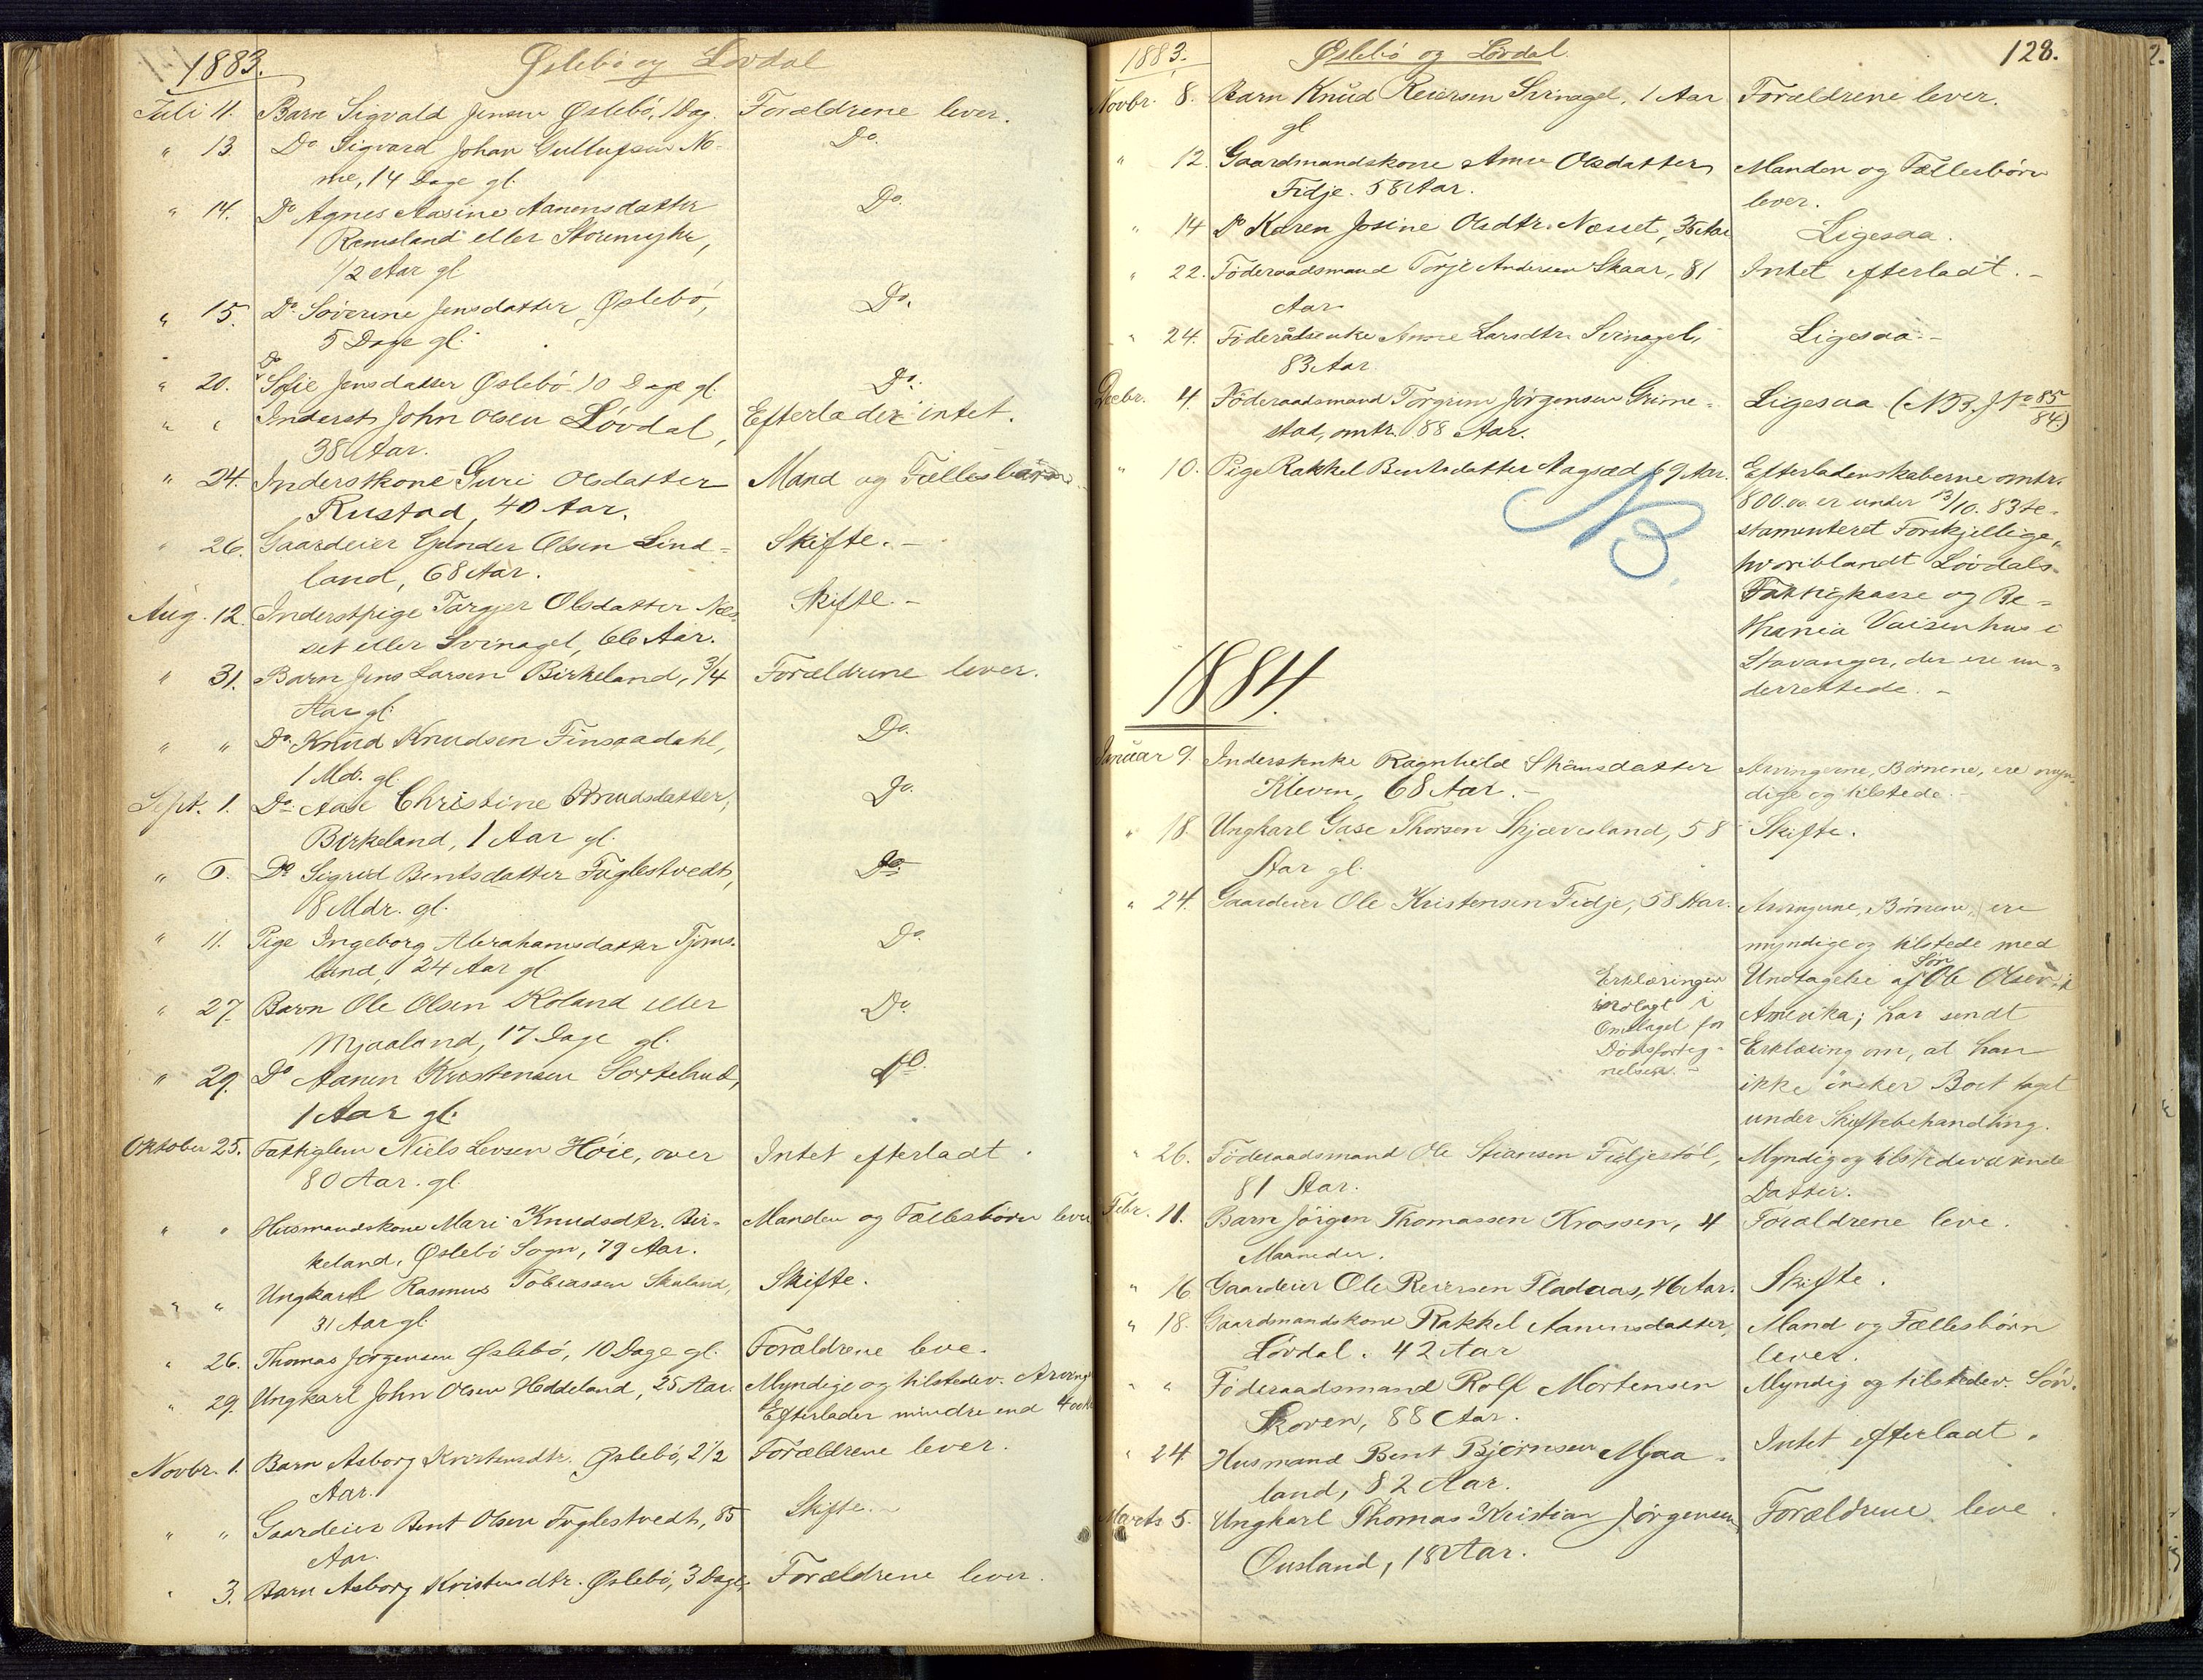 1883.
Øslebö og Løvdal
Juli 11. Barn Sigvald Jensen Øslebö, 1 Dag. Forældrene lever.
" 13. Do Sigvard Johan Gullufsen No-
me, 14 Dage gl. Do.
" 14. Do Agnes Aasine Aanensdatter
Remesland eller Storemyhr,
1/2 Aar gl Do.
" 15. Do Söverine Jensdatter Øslebö,
5 Dage gl. Do.
" 20. Do Sofie Jensdatter Øslebö 10 Dage gl. Do.
" " Inderst John Olsen Lövdal, Efterlader intet.
38 Aar.
" 24. Inderstkone Guri Olsdatter Mand og Fællesbørn
Rustad, 40 Aar.
" 26. Gaardeier Gunder Olsen Lind=
land, 68 Aar. Skifte. -
Aug. 12. Inderstpige Targjer Olsdatter Næs-
set eller Svinagel, 66 Aar. Skifte. -
" 31. Barn Jens Larsen Birkeland, 3/4 Forældrene lever.
Aar gl.
" " Do. Knud Knudsen Finsaadahl, Do.
1 Md. gl.
Sept. 1. Do Aase Christine Knudsdatter, Do.
Birkeland, 1 Aar gl.
" 6. Do Sigrid Bentsdatter Fuglestvedt, Do.
8 Mdr. gl.
" 11. Pige Ingeborg Abrahamsdatter Tjoms- Do.
land, 24 Aar gl
" 27. Barn Ole Olsen Köland eller Do.
Mjaaland, 17 Dage gl.
" 29. Do Aanen Kristensen Sortelund, Do.
1 Aar gl.
Oktober 25. Fattiglem Niels Levsen Höie, over Intet efterladt.
80 Aar. gl
" " Husmandskone Mari Knudsdtr. Bir- Manden og Fællesbörn lever
keland, Øslebö Sogn, 79 Aar.
" " Ungkarl Rasmus Tobiassen Skuland, Skifte.
31 Aar gl.
" 26. Thomas Jörgensen Øslebö, 10 Dage gl. Forældrene leve.
" 29. Ungkarl John Olsen Heddeland, 25 Aar. Myndige og tilstedev. Arving
Efterlader mindre end
Novbr. 1. Barn Asborg Kristensdtr. Øslebö, 2 1/2 Forældrene lever.
Aar.
" " Gaardeier Bent Olsen Fuglestvedt, 85 Skifte. -
Aar.
" 3. Barn Asborg Kristensdtr. Øslebö, 3 Dage, Forældrene lever.
1883.
Øslebö og Lövdal.
128.
Novbr. 8. Barn Knud Reiersen Svinagel, 1 Aar Forældrene lever.
gl
" 12. Gaardmandskone Anne Olsdatter Manden og Fællesbörn
Fidje. 58 Aar. lever.
" 14 Do Karen Josine Olsdtr. Næsset, 35 Aar Ligesaa.
" 22. Föderaadsmand Torje Andersen Skaar, 81 Intet efterladt. -
Aar
" 24. Föderådsenke Anne Larsdtr. Svinagel, Ligesaa. -
83 Aar
Decbr. 4. Föderaadsmand Torgrim Jørgensen Grime= Ligesaa (NB. J No 85/84)
stad, omtr. 88 Aar.
" 10. Pige Rakkel Bentsdatter Aagsæd 69 Aar. Efterladenskaberne omtr.
800.00 er under 13/10. 83 te-
stamenteret Forskjellige,
hvoriblandt Lövdals
Fattigkasse og Be=
thania Vaisenhus i
Stavanger, der ere un=
derrettede. -
NB.
1884.
Januar 9. Inderstenke Ragnhild Stiansdatter Arvingerne, Börnene, ere myn-
Kleven, 68 Aar. - dige og tilstede. -
" 18. Ungkarl Gase Thorsen Skjævesland, 58 Skifte.
Aar gl.
" 24. Gaardeier Ole Kristensen Fidje, 58 Aar. Arvingerne, Börnene, ere
myndige og tilstede med
Undtagelse af Sön Ole Olsen i
Amerika; har sendt
Erklæring om, at han
ikke önsker Boet taget
under Skiftebehandling.
Erklæringen
indlagt i
Omslaget for
Dödsforteg-
nelsen. -
" 26. Föderaadsmand Ole Stiansen Fidjestöl, Myndig og tilstedeværende
81 Aar. Datter.
Febr. 11. Barn Jörgen Thomassen Krossen, 4 Forældrene leve.
Maaneder.
" 16 Gaardeier Ole Reiersen Fladaas, 46 Aar. Skifte.
" 18. Gaardmandskone Rakkel Aanensdatter, Mand og Fællesbörn
Lövdal. 42 Aar lever.
" " Föderaadsmand Rolf Mortensen Myndig og tilstedev. Sön.
Skoven, 88 Aar.
" 24. Husmand Bent Bjørnsen Mjaa- Intet efterladt.
land, 82 Aar.
Marts 5. Ungkarl Thomas Kristian Jörgensen Forældrene leve
Ousland, 18 Aar.